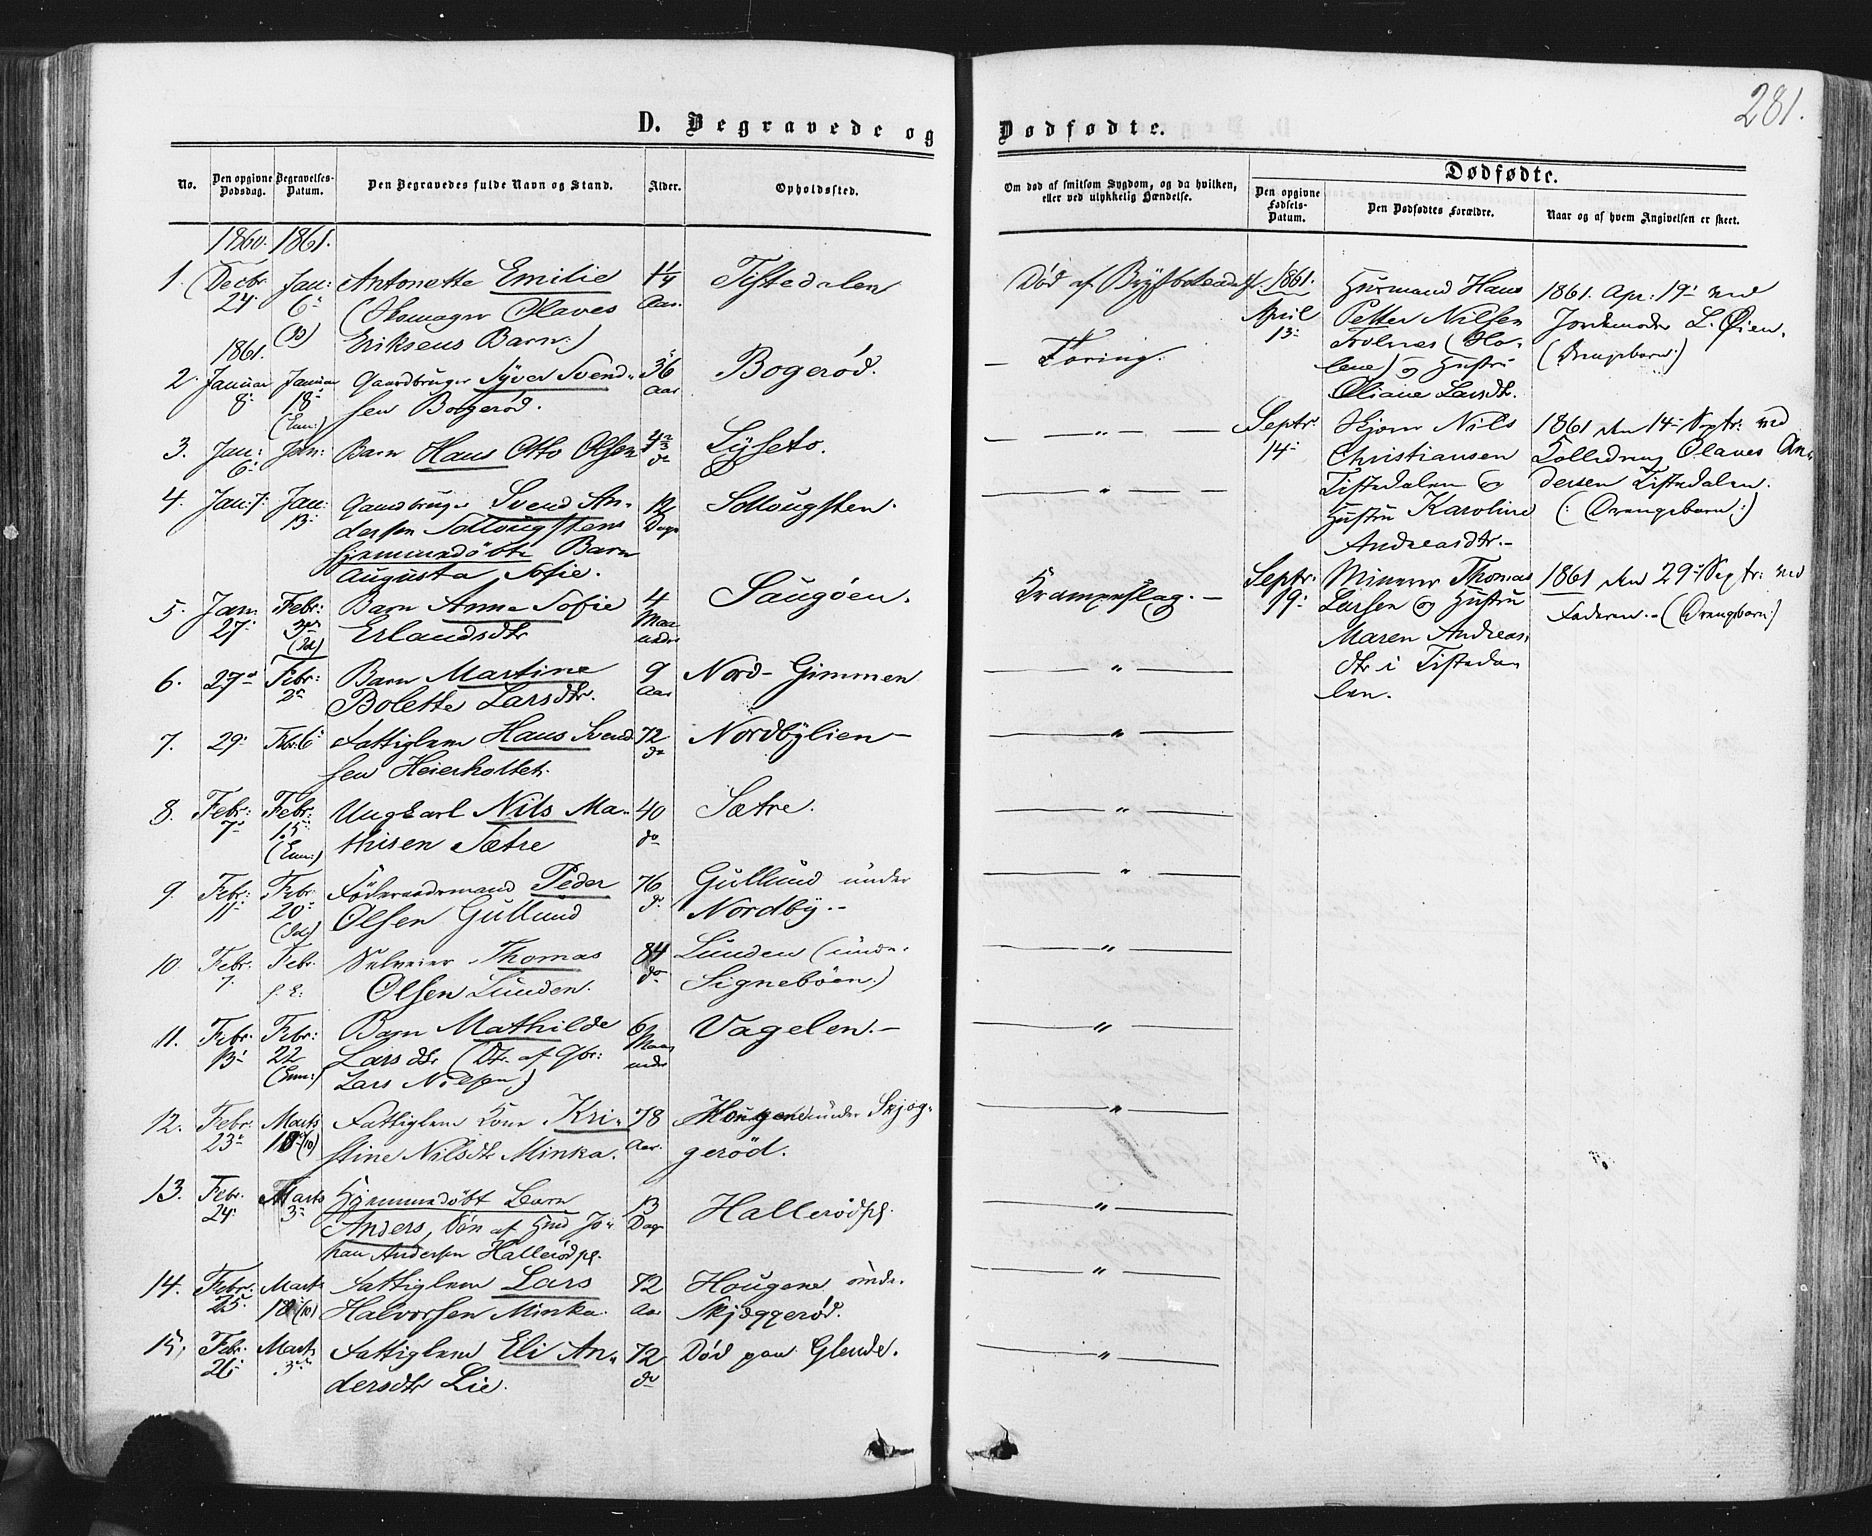 281.
D. Begravede og
Dødfødte.
No.
Den opgivne Dødsdag.
Begravelses-Datum.
Den Begravedes fulde Navn og Stand.
Alder.
Opholdssted.
Om død af smitsom Sygdom, og da hvilken,
eller ved ulykkelig Hændelse.
Dødfødte.
Den opgivne Fødsels-Datum.
Den Dødfødtes Forældre.
Naar og af hvem Angivelsen er skeet.
1860. 1861.
1. Decbr. 24. Jan: 6. Antonette Emilie 1 1/4 Aar. Tistedalen
Olaves
Eriksens Barn:)
1861.
2. Januar 8. Januar 18. Gaardbruger Syver Svend- 36 Aar Bogerød.
sen Bogerød.
3. Jan: 6. Jan: Barn Hans Otto Olsen Lyseto.
4. Jan: 7. Jan: 13. Gaardbruger Svend An- 12 Dage Sollougsten.
dersen Sollougstens
hjemmedøbte Barn
Augusta Sofie.
5. Jan: 27. Febr: 3. Barn Anne Sofie 4 Maaneder Saugøen.
Erlandsdtr
6. 27. Febr: Barn Martine 9 Aar Nord-Gimmen
Bolette Larsdtr.
7. 29. Fbr: 6. Fattiglem Hans Svend- 72 do Nordbylien
sen Heierholtet.
8. Febr: 7. Febr: 15. Ungkarl Nils Ma- 40 do Sætre.
thisen Sætre
9. Febr: 11. Febr: 20. Føderaadsmand Peder 76 do. Gullund under
Olsen Gullund Nordby.
10. Febr. 7. Febr. Selveier Thomas 84 do Lunden (unde
Olsen Lunden. Signebøen.)
11. Febr. 13. Febr: 22 Barn Mathilde 6 Maaneder Vagelen.
Larsdtr (Dtr. af Gbr:
Lars Nilsen)
12. Febr. 23. Marts (10) Fattiglem Kone Kri- 78 Aar. Hougene under Skjøg-
stine Nilsdtr Minka. gerød.
13. Febr. 24. Marts 3. Hjemmedøbt Barn 13 Dage Hallerødpl.
Anders, Søn af Hmd Jo-
han Andersen Hallerødpl.
14. Febr. 25. Marts (10) Fattiglem Lars 72 Aar Hougene unde.
Halvorsen Minka. Skjæggerød.
15. Febr. 26. Marts Fattiglem Eli An- 72 do Død paa Glende.
dersdtr Lie.
Død af
1861. April 13.
Huusmand Hans
Petter Nilsen
lene) og Hustru
Oliane Larsdtr.
1861. Apr: 19. ved
Jordemoder L. Øien.
— Tæring.
— " —
Septr 14.
Nils
Christiansen
Tistedalen og
Hustru Karoline
Andreasdtr.
1861 den 14 Septr: ved
Olaves An-
dersen Tistedalen.
(: Drengebarn:)
— " —
Krampeslag. —
Septr. 19.
Minerer Thomas
Larsen og Hustru
Maren Andreas-
dtr i Tisteda-
len.
1861 den 29 Septr: ved
Faderen. (Drengebarn:)
— " —
— " —
— " —
— " —
— " —
— " —
— " —
— " —
— " —
— " —